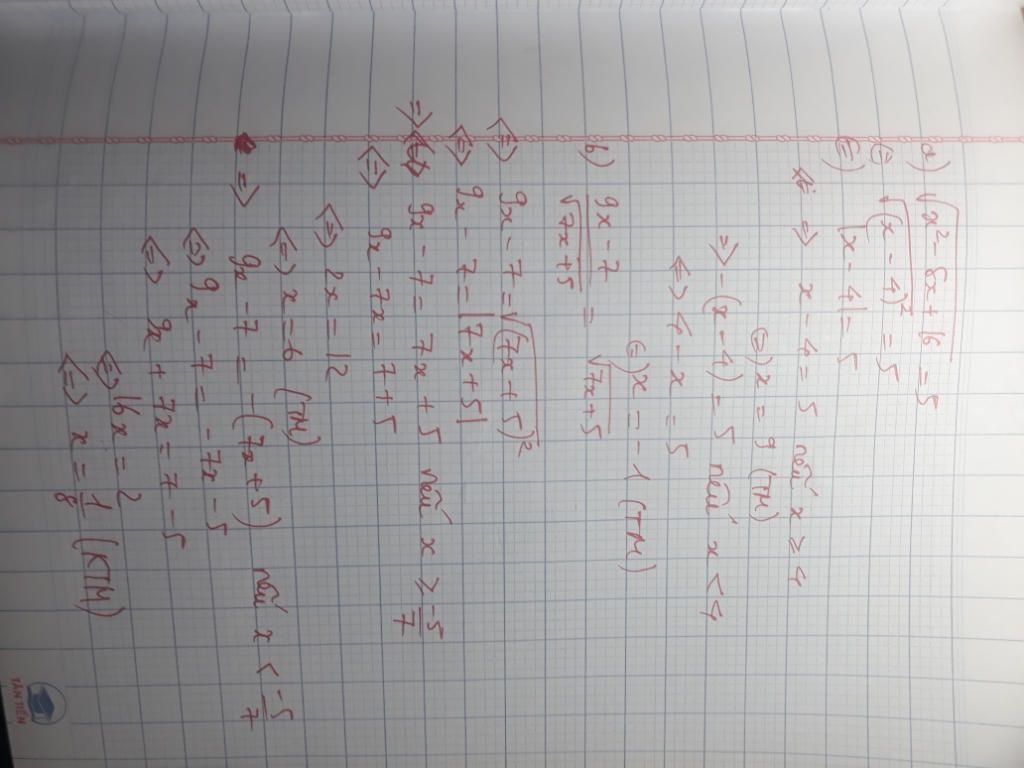 a) √(x² - 8x + 16) = 5
⇔ √((x - 4)²) = 5
⇔ |x - 4| = 5
⇒ x - 4 = 5 nếu x ≥ 4
⇔ x = 9 (TM)
⇒ -(x - 4) = 5 nếu x < 4
⇔ 4 - x = 5
⇔ x = -1 (TM)
b) (9x - 7)/√(7x + 5) = √(7x + 5)
⇔ 9x - 7 = √((7x + 5)²)
⇔ 9x - 7 = |7x + 5|
⇒ 9x - 7 = 7x + 5 nếu x ≥ -5/7
⇔ 9x - 7x = 7 + 5
⇔ 2x = 12
⇔ x = 6 (TM)
⇒ 9x - 7 = -(7x + 5) nếu x < -5/7
⇔ 9x - 7 = -7x - 5
⇔ 9x + 7x = 7 - 5
⇔ 16x = 2
⇔ x = 1/8 (KTM)
TÂN TIẾN